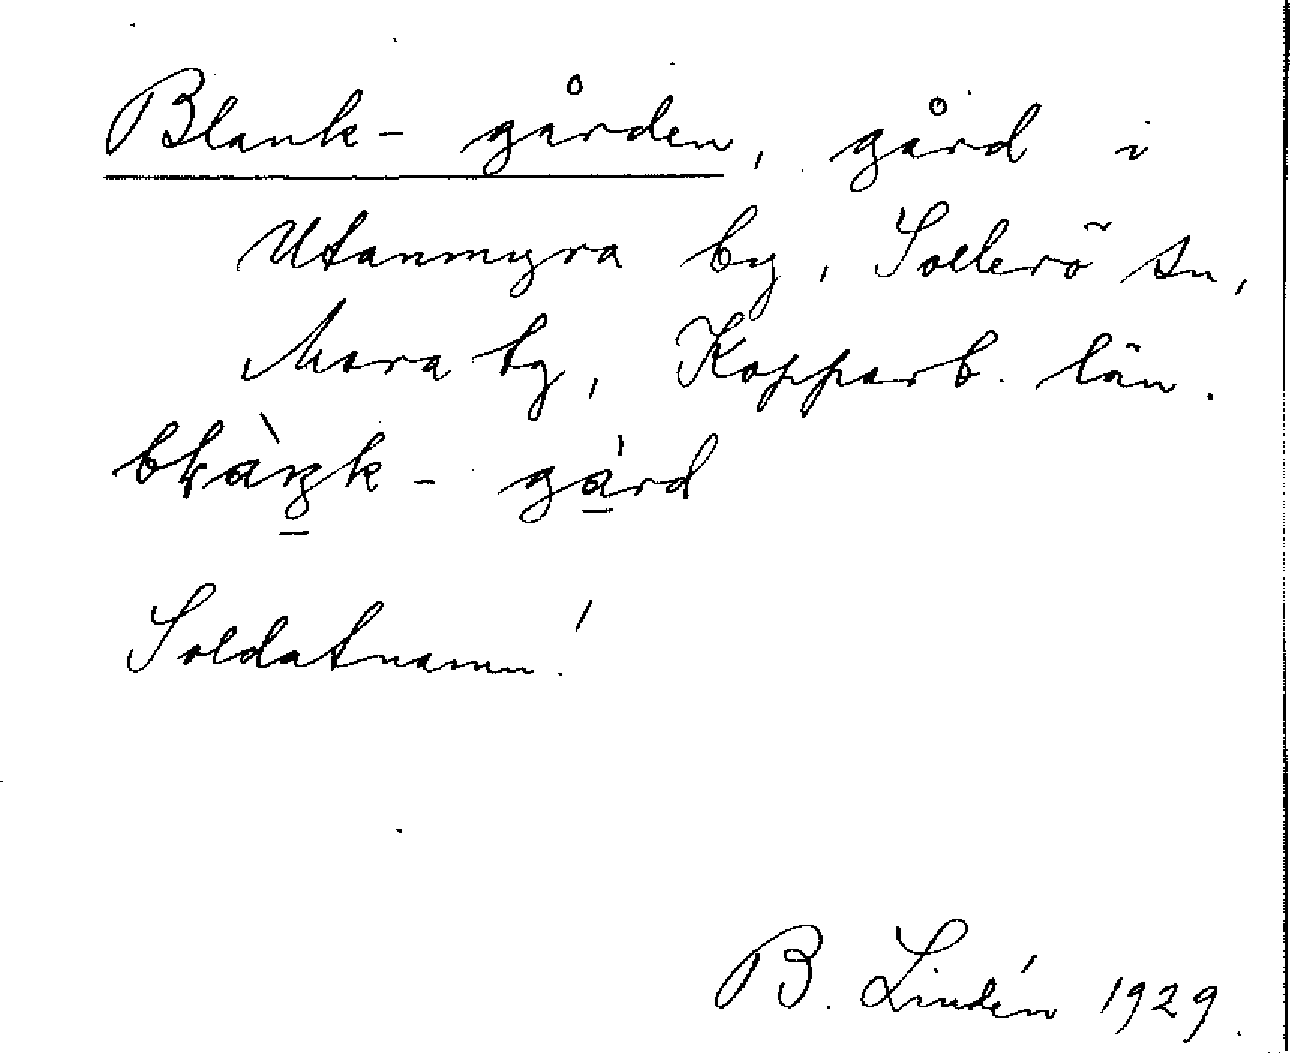 Blank-gården, gård i
Utanmyra by, Sollerö sn,
Mora tg, Kopparb. län.
blàŋk-gá̱rd
Soldatnamn!
B. Lindén 1929.